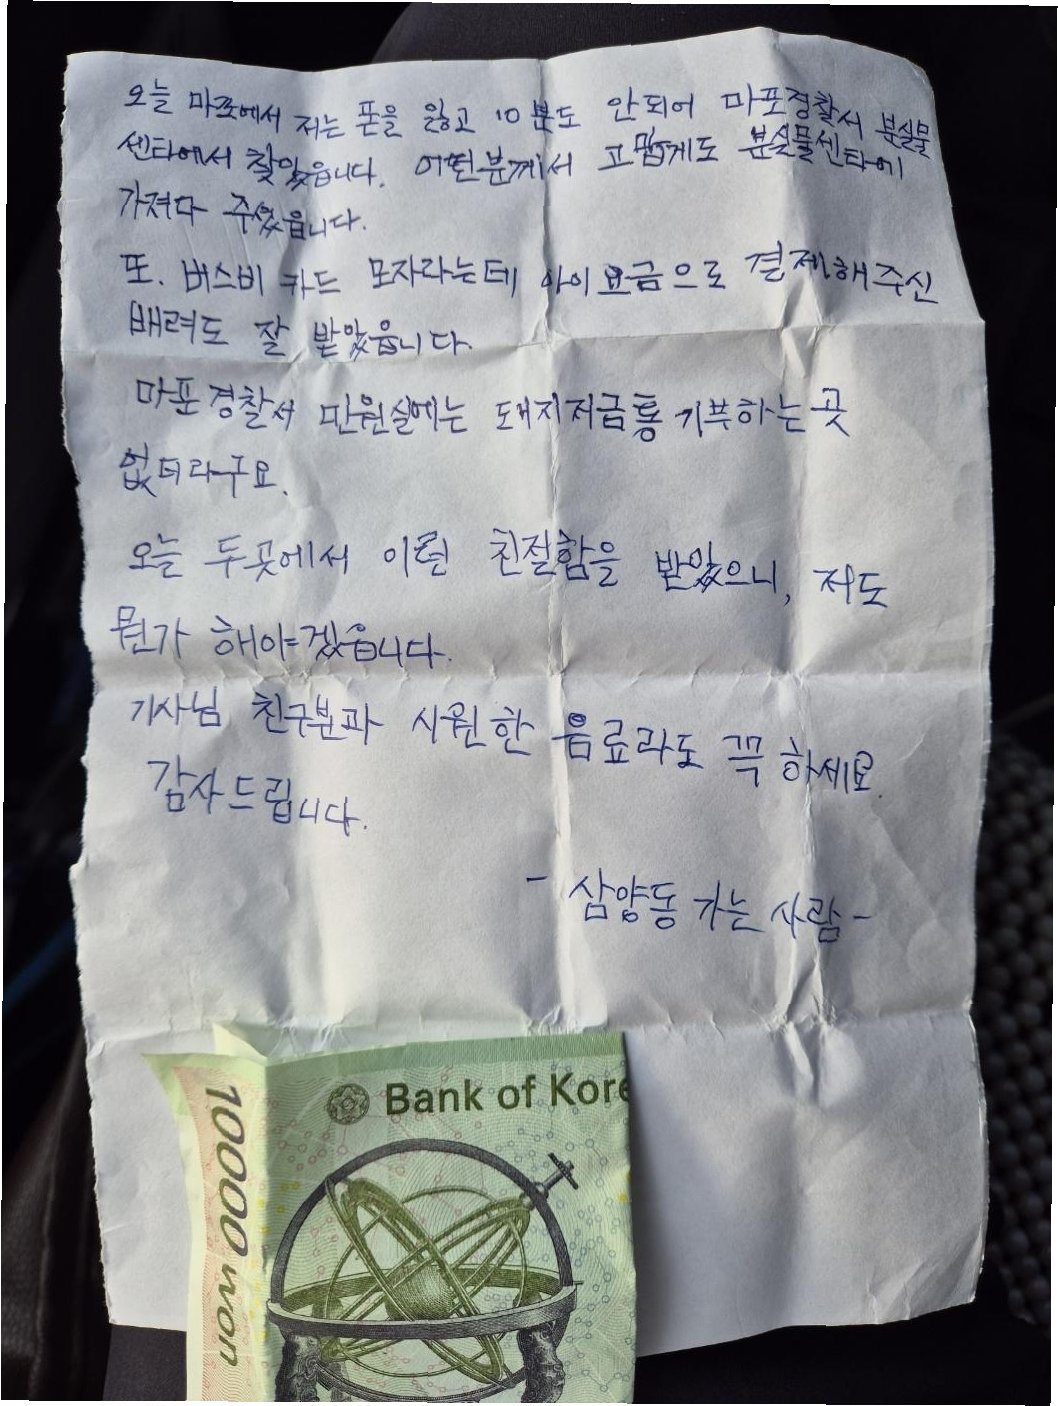 오늘 마포에서 저는 폰을 잃고 10분도 안되어 마포경찰서 분실물
센타에서 찾았읍니다. 어떤분께서 고맙게도 분실물센타에
가져다 주셨읍니다.
또. 버스비 카드 모자라는데 아이요금으로 결제해주신
배려도 잘 받았읍니다.
마포경찰서 민원실에는 돼지저금통 기부하는 곳
없더라구요.
오늘 두곳에서 이런 친절함을 받았으니, 저도
뭔가 해야겠읍니다.
기사님 친구분과 시원한 음료라도 꼭 하세요
감사드립니다.
- 삼양동 가는 사람 -
Bank of Kore
10000 won